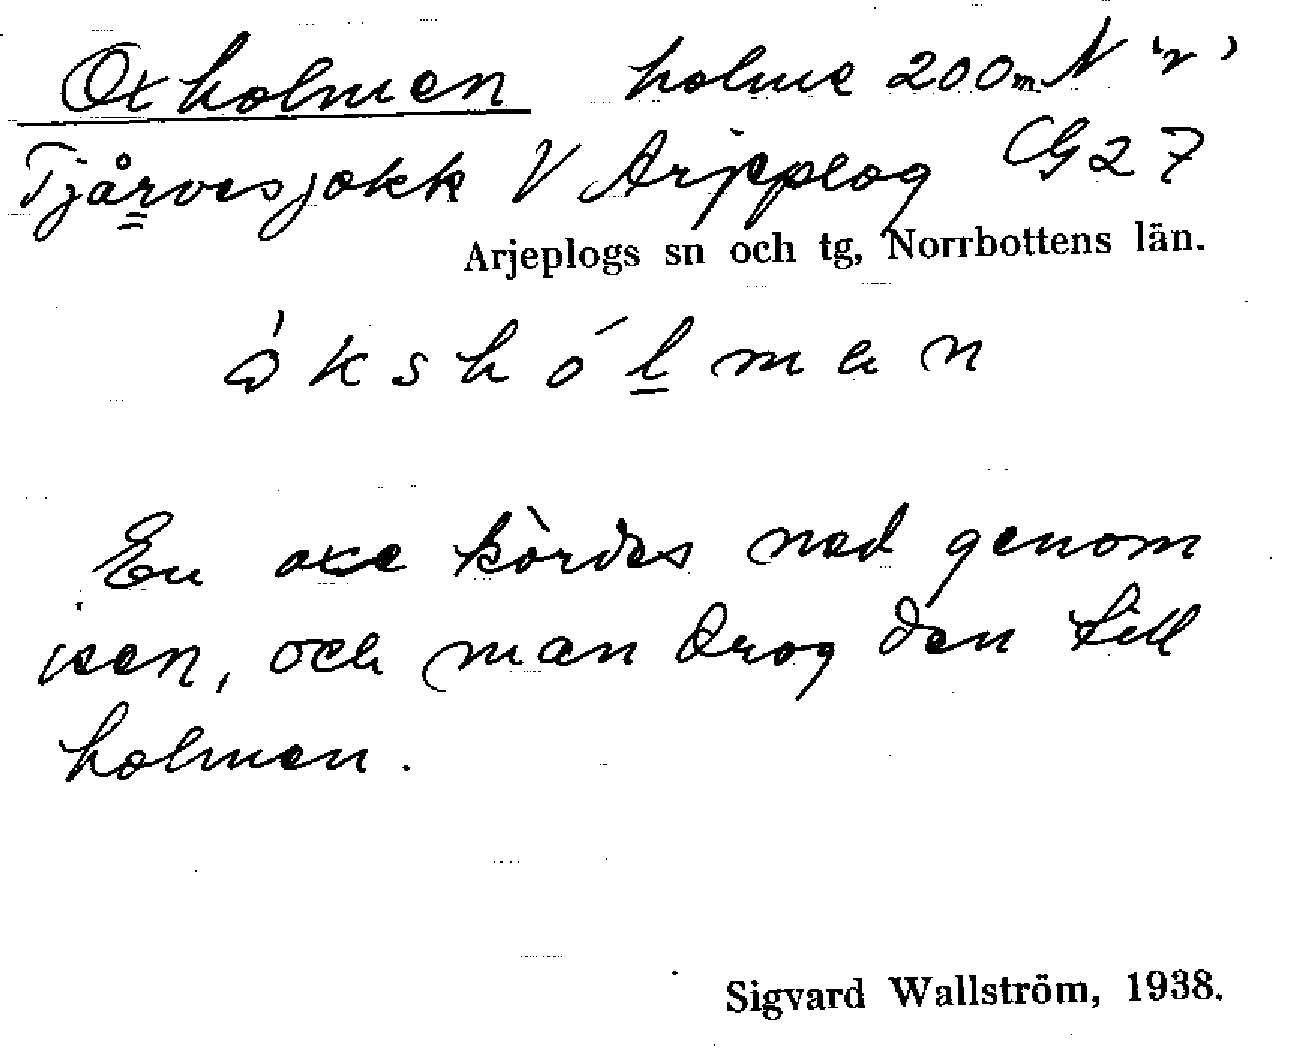 Oxholmen holme 200m N 'r'
Tjårvesjokk V Arjepplog G27
Arjeplogs sn och tg, Norrbottens län.
ò k s h ó l m a n
En oxe kördes ned genom
isen, och man drog den till
holmen.
Sigvard Wallström, 1938.